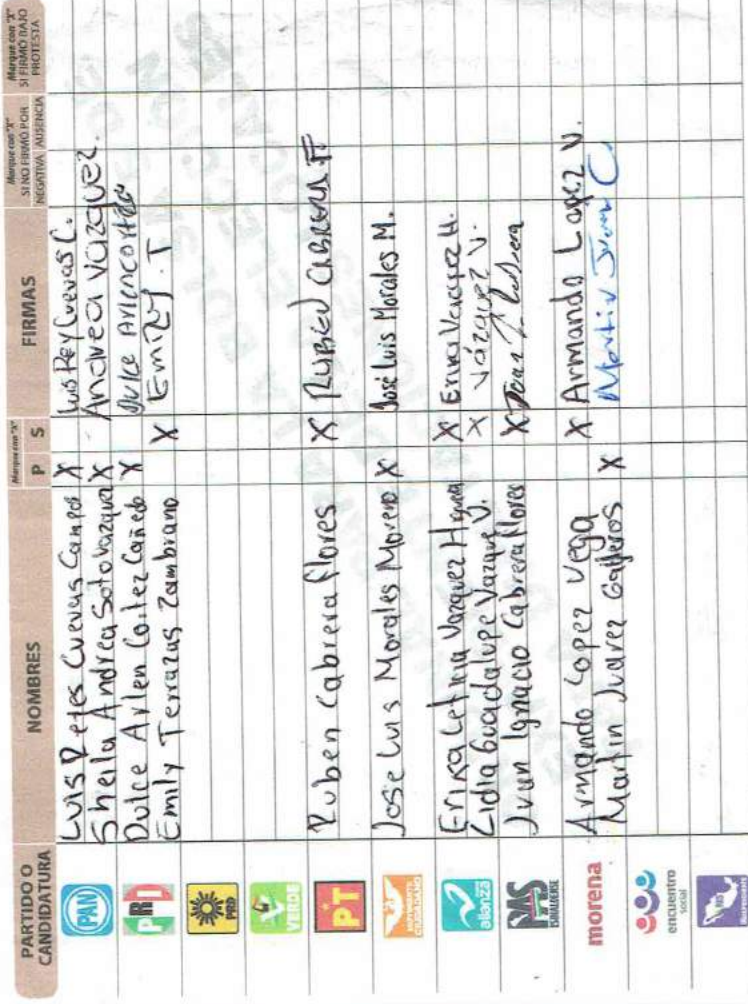 PARTIDO O CANDIDATURA
NOMBRES
Marque con "X"
P S
FIRMAS
Marque con "X"
SI NO FIRMÓ POR
NEGATIVA AUSENCIA
Marque con "X"
SI FIRMÓ BAJO
PROTESTA
PAN
Luis Reyes Cuevas Campos X Luis Rey Cuevas C.
Sheila Andrea Soto Vazquez X Andrea Vazquez.
PRI
Dulce Arlen Cortez Cañedo X Dulce Arlen Cortez
Emily Terrazas Zambrano X Emily. T
PRD
VERDE
PT
Ruben Cabrera Flores X RUBEN CABRERA F
MOVIMIENTO CIUDADANO
Jose Luis Morales Moreno X José Luis Morales M.
alianza
Erika Leticia Vazquez Higuera X Erika Vazquez H.
Lidia Guadalupe Vazque V. X Vázquez V.
PAS
SINALOENSE
Juan Ignacio Cabrera Flores X Juan I Cabrera
morena
Armando Lopez Vega X Armando Lopez V.
Martin Juarez X Martin Juarez
encuentro
social